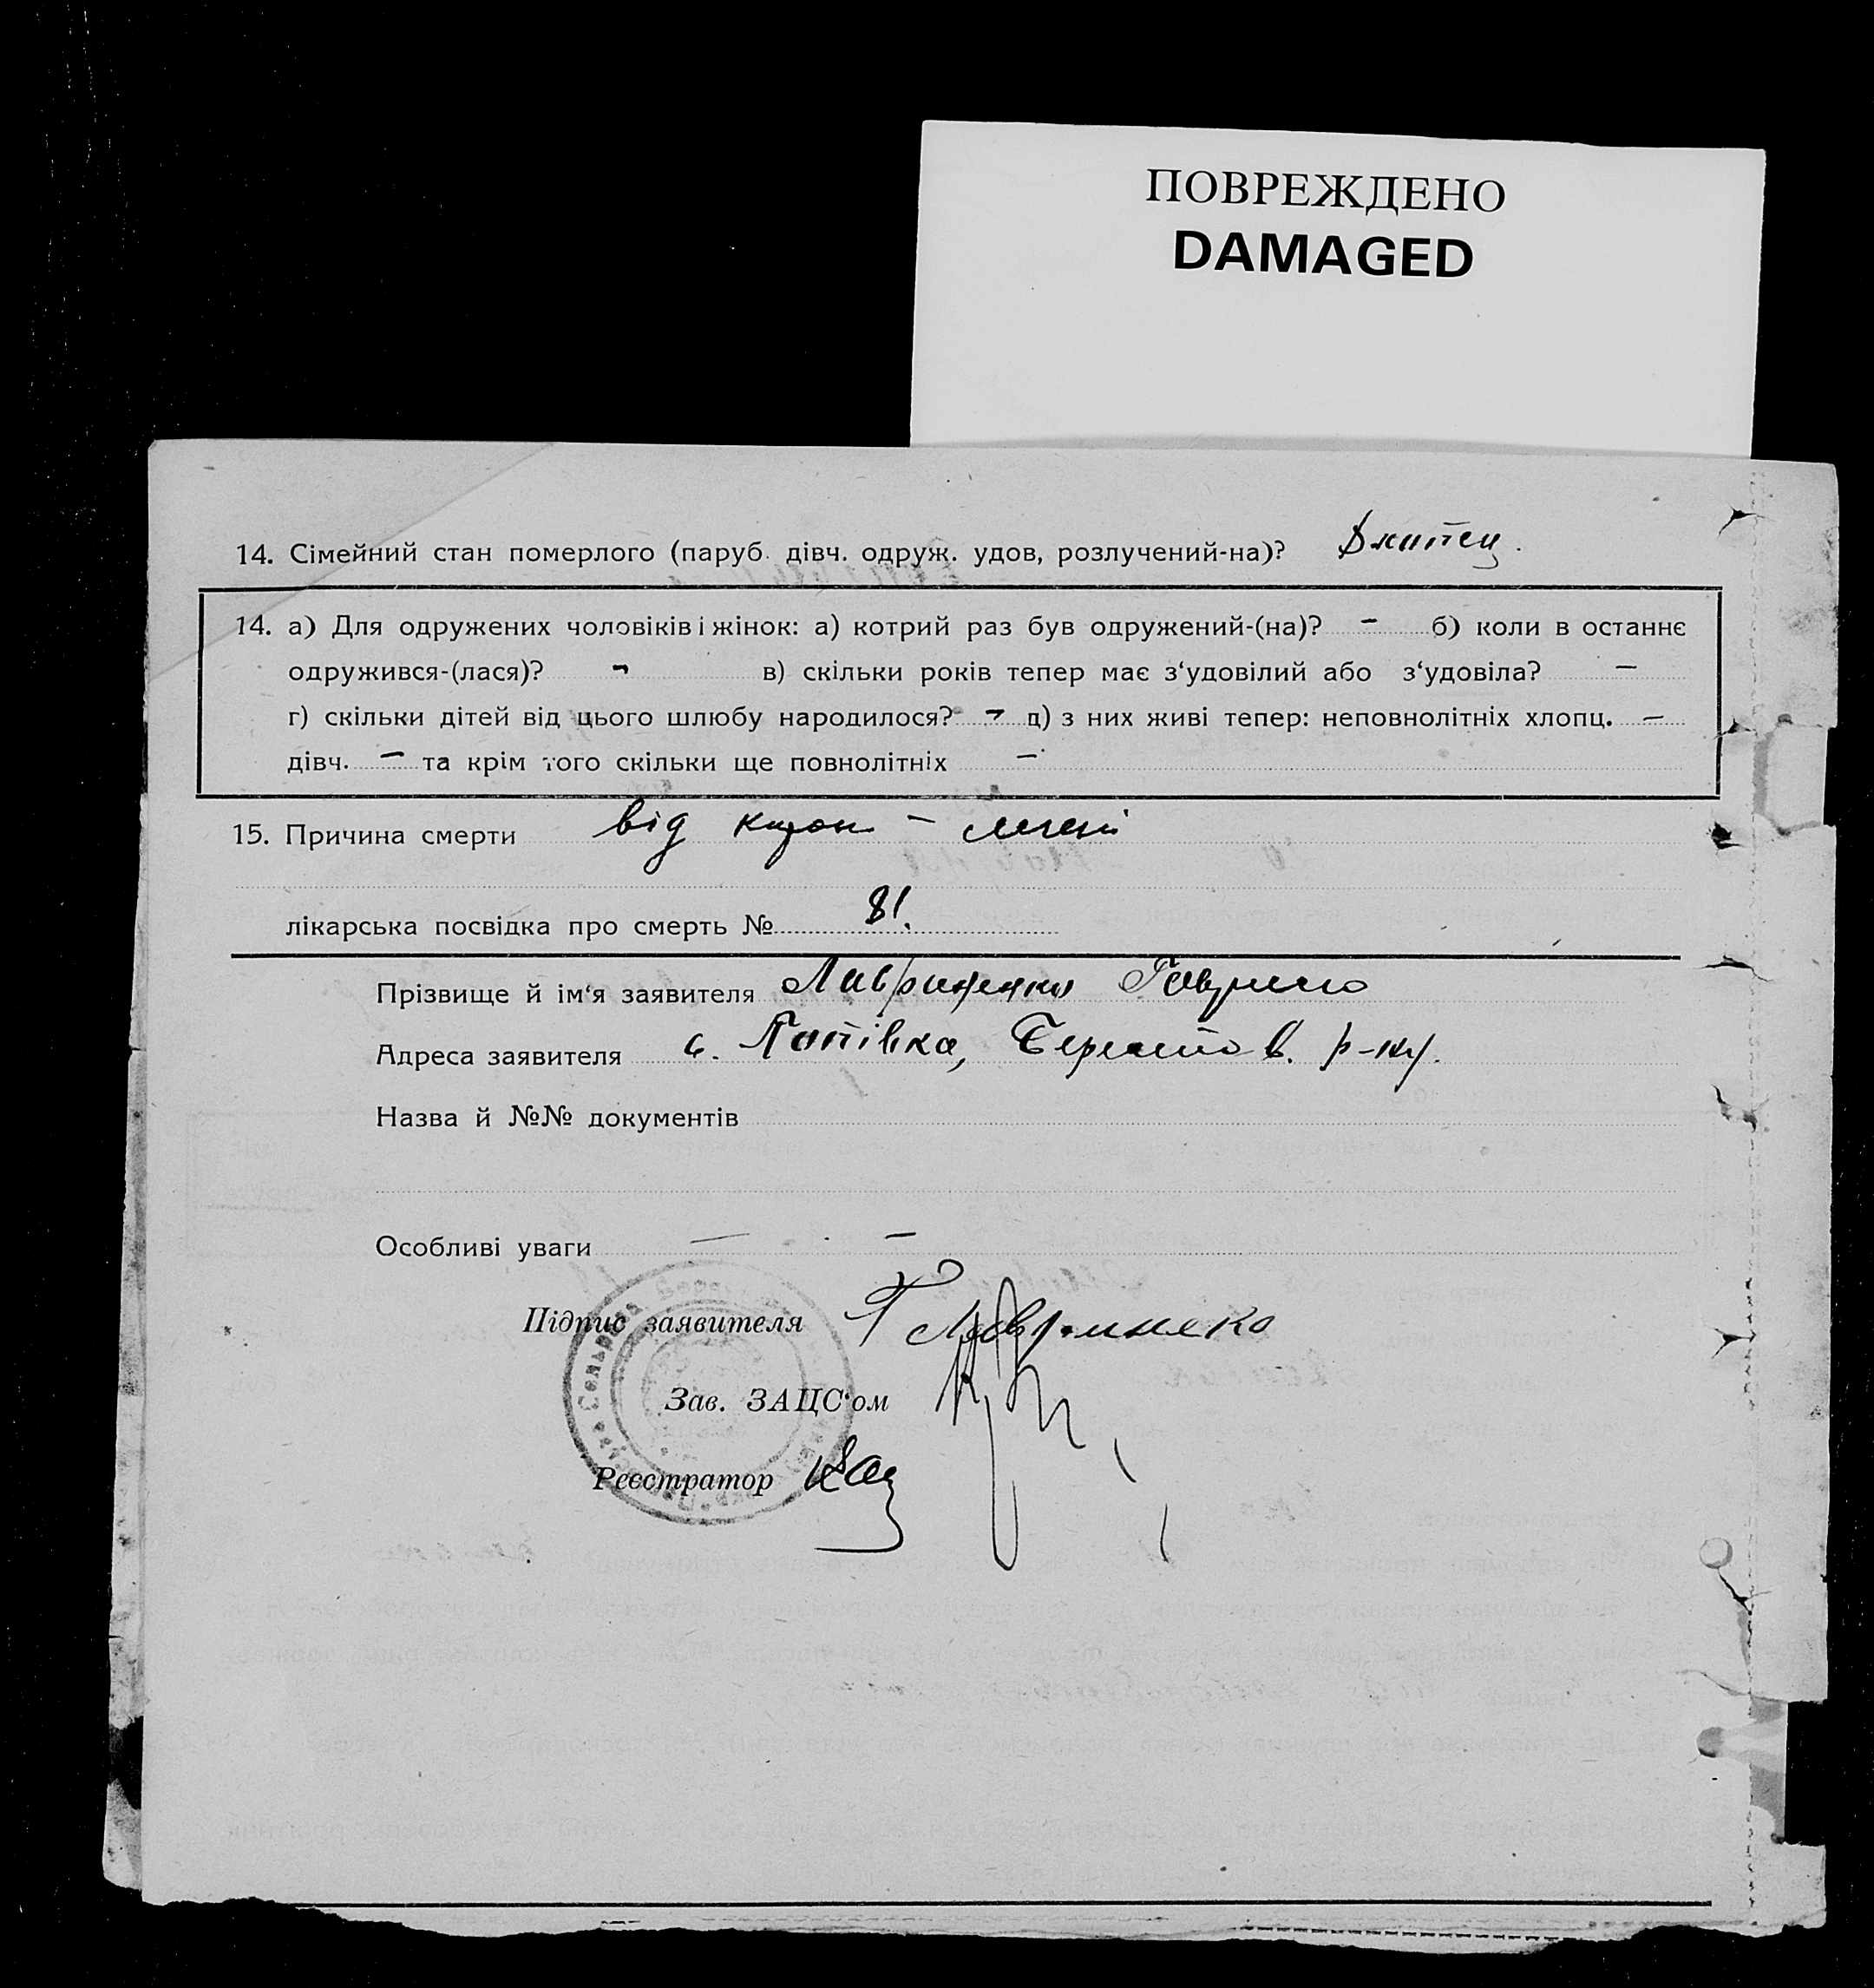 ПОВРЕЖДЕНО
DAMAGED
14. Сімейний стан померлого (паруб. дівч. одруж. удов, розлучений-на)?
14. а) Для одружених чоловіків і жінок: а) котрий раз був одружений-(на)? – б) коли в останнє
одружився-(лася)? – в) скільки років тепер має з‘удовілий або з‘удовіла? –
г) скільки дітей від цього шлюбу народилося? – д) з них живі тепер: неповнолітніх хлопц. –
дівч. – та крім того скільки ще повнолітніх –
15. Причина смерти від
лікарська посвідка про смерть № 81.
Прізвище й ім‘я заявителя Лавриненко
Адреса заявителя с. Попівка, Берестов. р-ну.
Назва й №№ документів
Особливі уваги – –
Підпис заявителя Г Лавриненко
Зав. ЗАЦС‘ом
Реєстратор